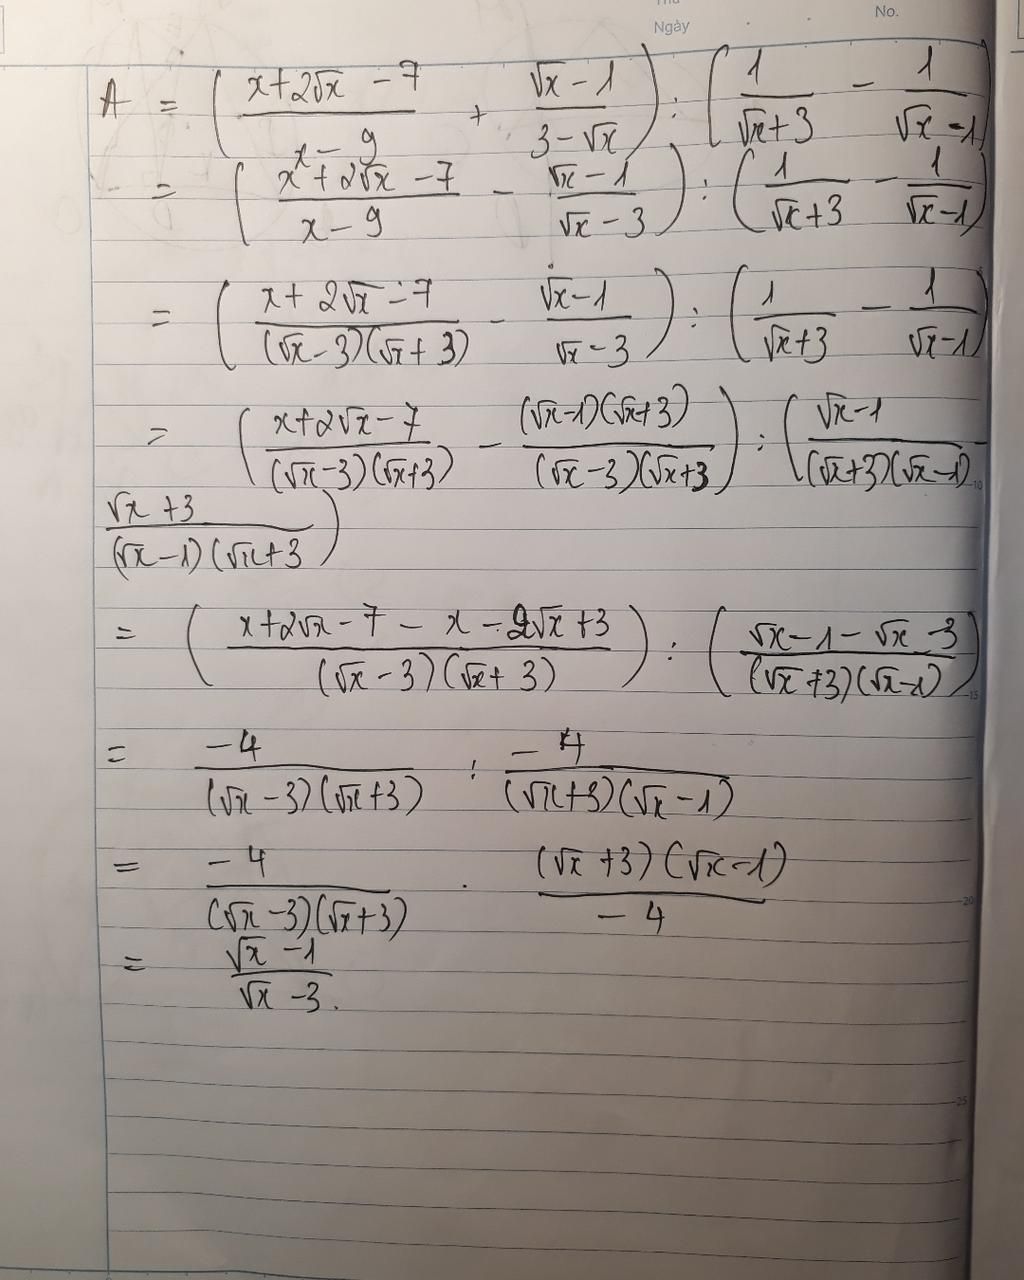 Thứ
Ngày No.
A = ( (x + 2√x - 7)/(x - 9) + (√x - 1)/(3 - √x) ) : ( 1/(√x + 3) - 1/(√x - 1) )
= ( (x + 2√x - 7)/(x - 9) - (√x - 1)/(√x - 3) ) : ( 1/(√x + 3) - 1/(√x - 1) )
= ( (x + 2√x - 7)/((√x - 3)(√x + 3)) - (√x - 1)/(√x - 3) ) : ( 1/(√x + 3) - 1/(√x - 1) )
= ( (x + 2√x - 7)/((√x - 3)(√x + 3)) - ((√x - 1)(√x + 3))/((√x - 3)(√x + 3)) ) : ( (√x - 1)/((√x + 3)(√x - 1)) -
10
(√x + 3)/((√x - 1)(√x + 3) )
= ( (x + 2√x - 7 - x - 2√x + 3)/((√x - 3)(√x + 3)) ) : ( (√x - 1 - √x - 3)/((√x + 3)(√x - 1)) )
15
= -4/((√x - 3)(√x + 3)) : -4/((√x + 3)(√x - 1))
= -4/((√x - 3)(√x + 3)) . ((√x + 3)(√x - 1))/-4
20
= (√x - 1)/(√x - 3).
25